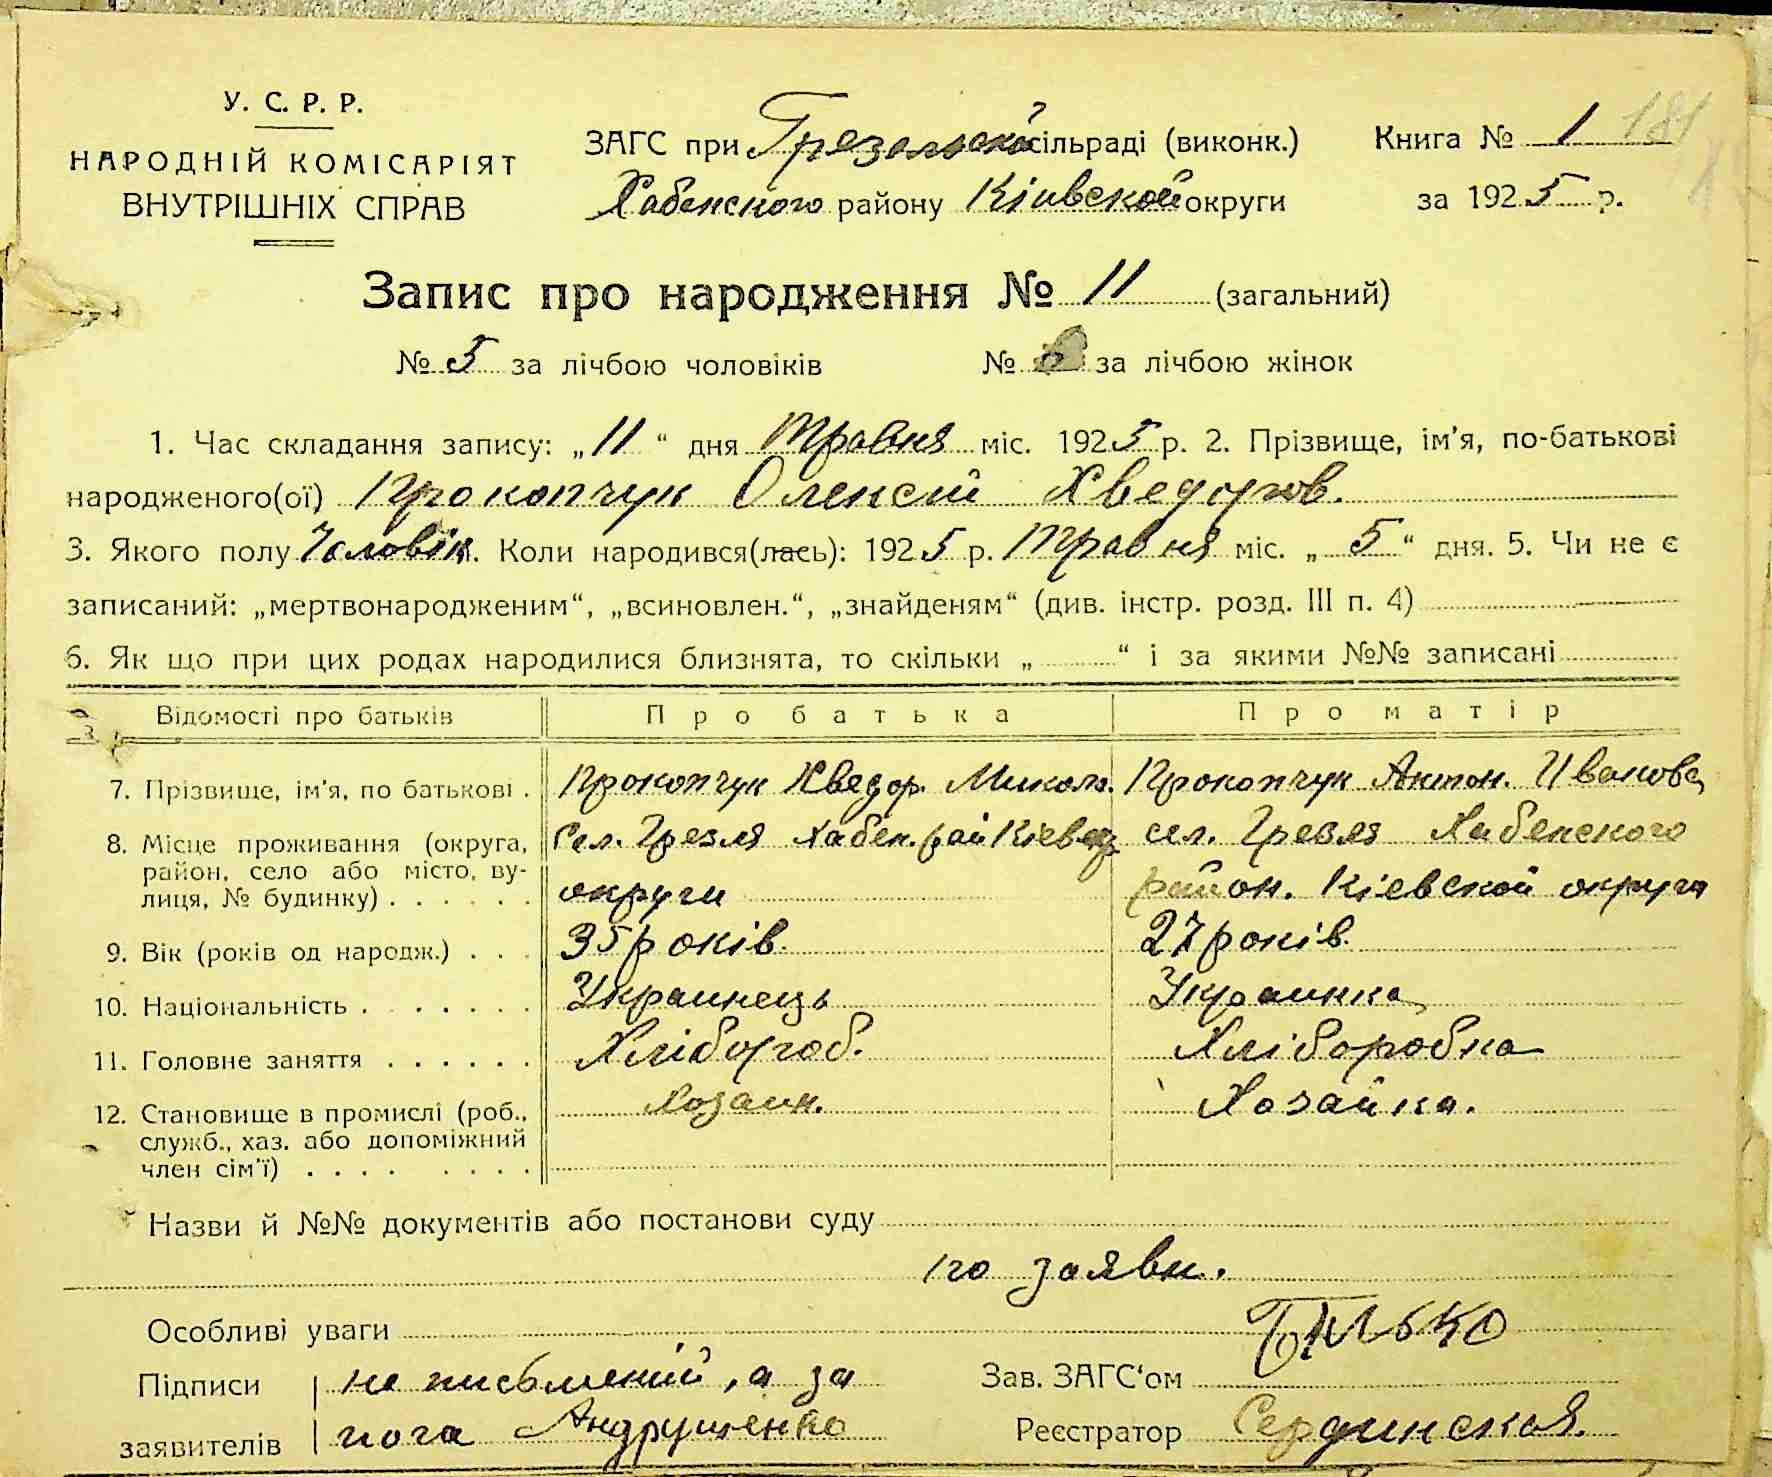 У. С. Р. Р.
НАРОДНІЙ КОМІСАРІЯТ
ВНУТРІШНІХ СПРАВ
ЗАГС при Грезельской сільраді (виконк.)
Хабенского району Кіивской округи
Книга № 1 181
за 1925 р.
Запис про народження № 11 (загальний)
№ 5 за лічбою чоловіків № за лічбою жінок
1. Час складання запису: „11“ дня Травня міс. 1925 р. 2. Прізвище, ім'я, по-батькові
народженого(ої) Прокопчук Олексій Хведоров.
3. Якого полу Чоловік. Коли народився(лась): 1925 р. Травня міс. „5“ дня. 5. Чи не є
записаний: „мертвонародженим“, „всиновлен.“, „знайденям“ (див. інстр. розд. III п. 4)
6. Як що при цих родах народилися близнята, то скільки „ “ і за якими №№ записані
Відомості про батьків Про батька Про матір
7. Прізвище, ім'я, по батькові . Прокопчук Хведор. Микола. Прокопчук Антон. Иванова
8. Місце проживання (округа, район, село або місто, вулиця, № будинку) . . . . . .
Сел. Грезля Хабен. рай Кіевск округи
сел. Грезля Хабенского район. Кіевской округи
9. Вік (років од народж.) . . . 35 років. 27 років.
10. Національність . . . . . . . Украинець Украинка
11. Головне заняття . . . . . . Хлібороб. Хліборобка
12. Становище в промислі (роб., служб., хаз. або допоміжний член сім'ї) . . . . . . . .
Хозаин. Хозайка.
Назви й №№ документів або постанови суду
по заявки.
Особливі уваги
Підписи не письмений, а за
заявителів його Андрущенко
Зав. ЗАГС'ом Билько
Реєстратор Сердинская.